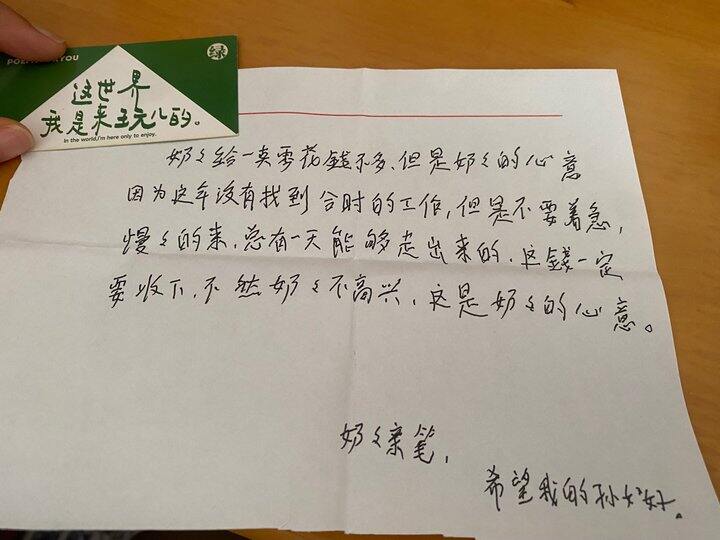 YOU
绿
这世界
我是来玩儿的。
In the world,I'm here only to enjoy.
奶々给一点零花錢不多、但是奶々的心意
因为这年没有找到合时的工作,但是不要着急,
慢々的来,总有一天能够走出来的,这錢一定
要收下,不然奶々不高兴,这是奶々的心意。
奶々亲笔,
希望我的孙女好。